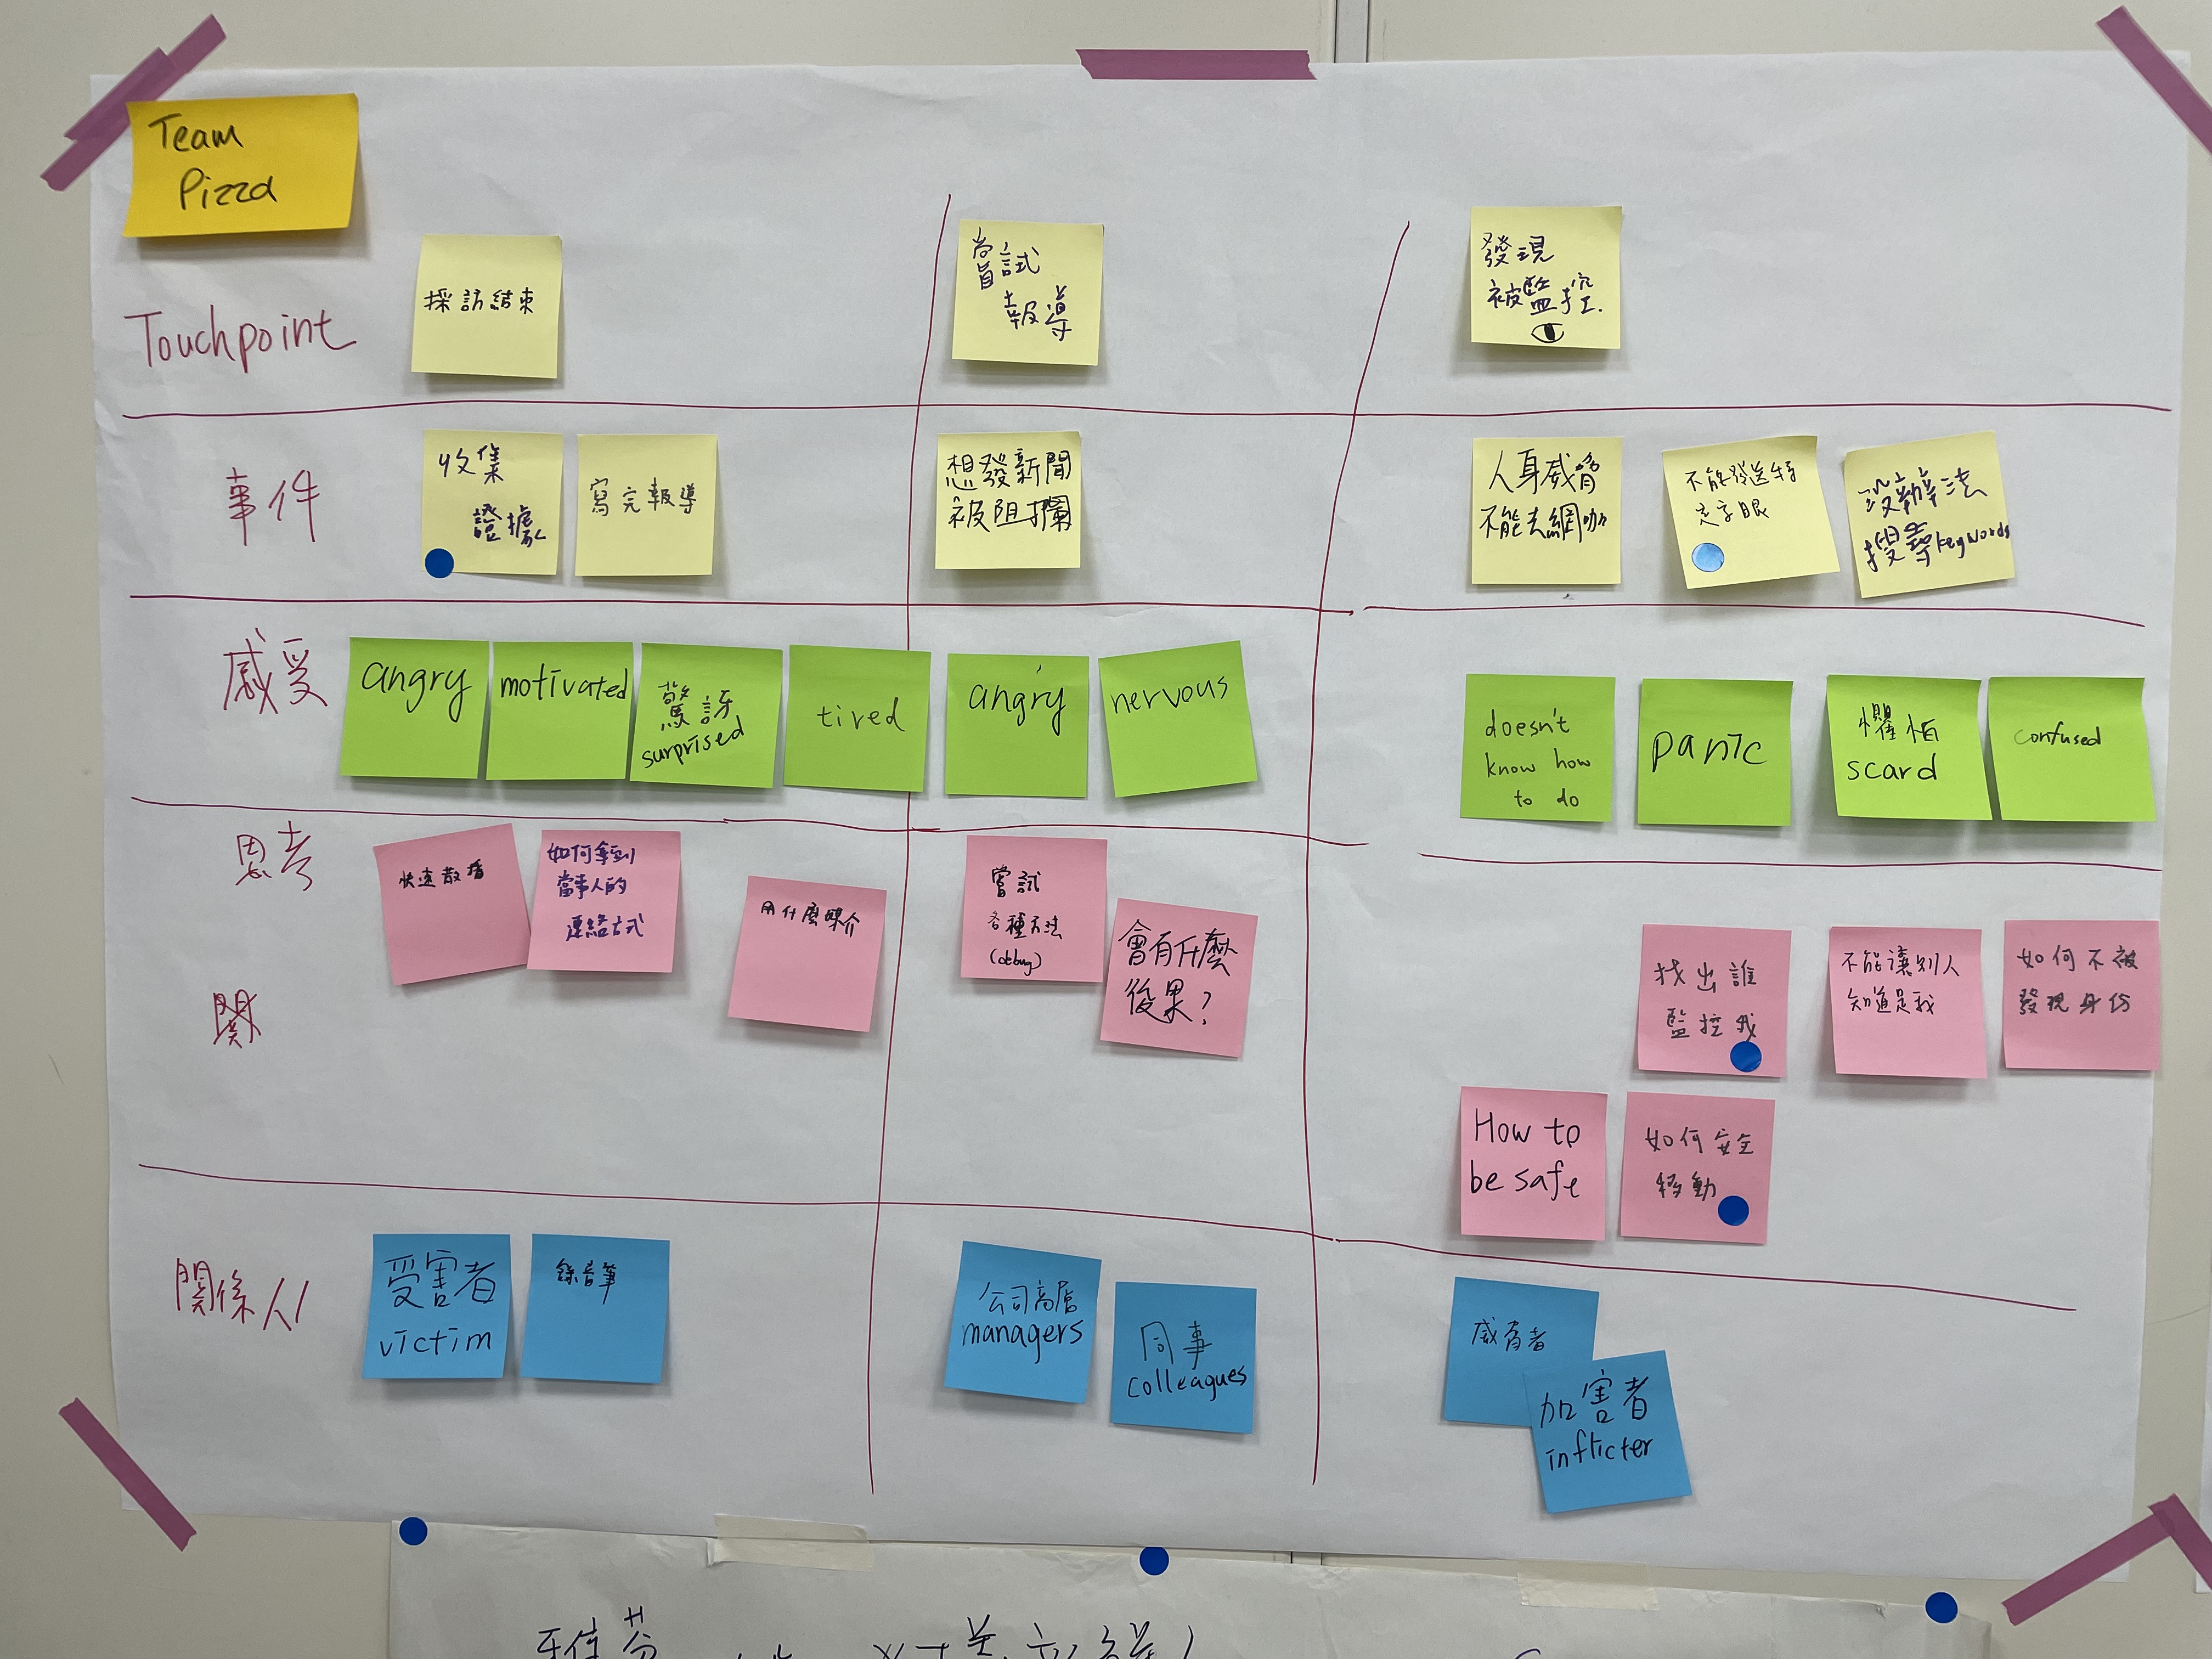 Team
Pizza
Touchpoint
採訪結束
嘗試
報導
發現
被監控.
事件
收集
證據
寫完報導
想發新聞
被阻攔
人身威脅
不能去網咖
不能發送特
定字眼
沒辦法
搜尋keywords
感受
angry
motivated
驚訝
surprised
tired
angry
nervous
doesn't
know how
to do
panic
懼怕
scard
confused
思考
快速散播
如何拿到
當事人的
連絡方式
用什麼媒介
嘗試
各種方法
(debug)
會有什麼
後果?
找出誰
監控我
不能讓別人
知道是我
如何不被
發現身份
How to
be safe
如何安全
移動
関係人
受害者
victim
錄音筆
公司高層
managers
同事
colleagues
威脅者
加害者
inflicter